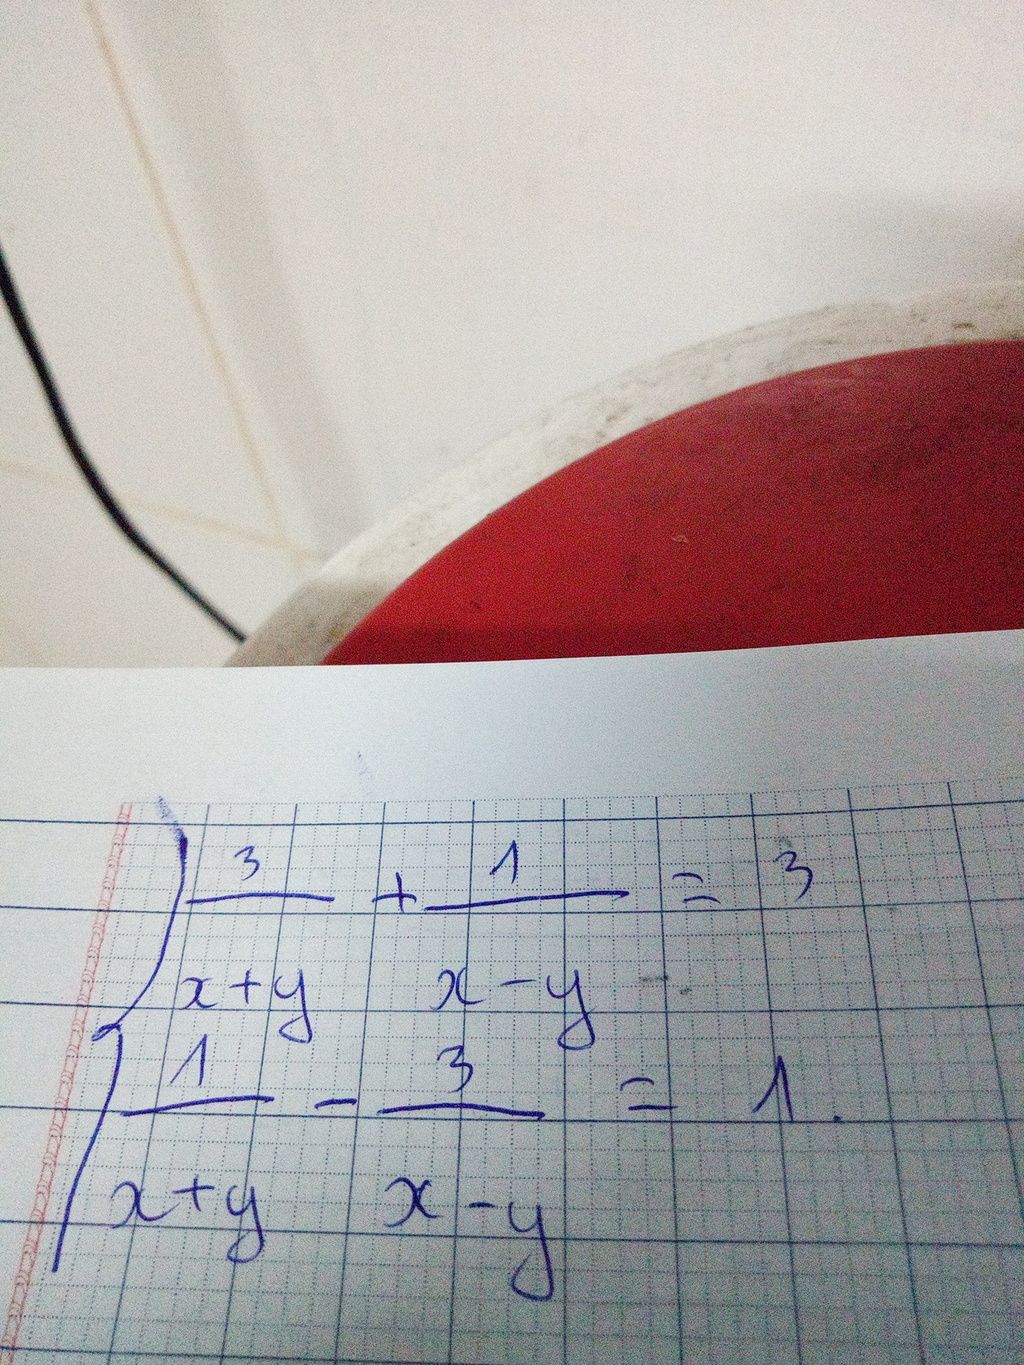 3/(x+y) + 1/(x-y) = 3
1/(x+y) - 3/(x-y) = 1.